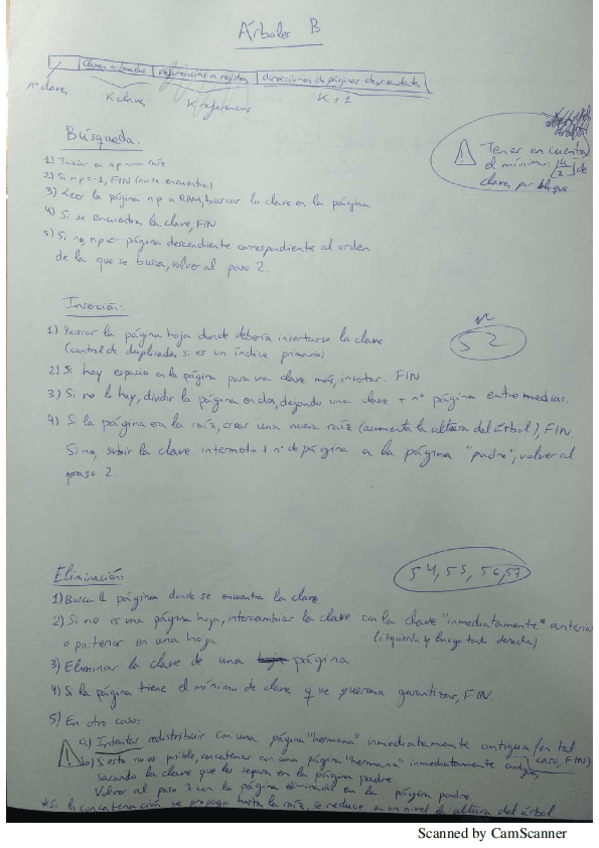 Árboles B
nº claves
claves ordenadas
referencias a registros
direcciones de páginas descendientes
K claves
K referencias
K + 1
Tener en cuenta
el mínimo: de
claves por bloque
Búsqueda:
1) Iniciar en np ← raíz
2) Si np = -1, FIN (no se encuentra)
3) Leer la página np a RAM, buscar la clave en la página
4) Si se encuentra la clave, FIN
5) Si no, np ← página descendiente correspondiente al orden
de la que se busca, volver al paso 2.
Inserción:
52
1) Buscar la página hoja donde debería insertarse la clave
(control de duplicados si es un índice primario)
2) Si hay espacio en la página para una clave más, insertar. FIN
3) Si no lo hay, dividir la página en dos, dejando una clave + nº página entre medias.
4) Si la página era la raíz, crear una nueva raíz (aumenta la altura del árbol), FIN
Si no, subir la clave intermedia + nº de página a la página "padre", volver al
paso 2.
Eliminación:
54, 55, 56, 57
1) Busca la página donde se encuentra la clave
2) Si no es una página hoja, intercambiar la clave con la clave "inmediatamente" anterior
o posterior en una hoja.
(izquierda y luego todo derecha)
3) Eliminar la clave de una página
4) Si la página tiene el mínimo de clave que queremos garantizar, FIN.
5) En otro caso:
a) Intentar redistribuir con una página "hermana" inmediatamente antigua (en tal
caso, FIN)
b) Si esto no es posible, concatenar con una página "hermana" inmediatamente antigua,
sacando la clave que las separa en la página padre.
Volver al paso 3 con la página eliminada en la página padre
* Si la concatenación se propaga hasta la raíz, se reduce en un nivel la altura del árbol
Scanned by CamScanner